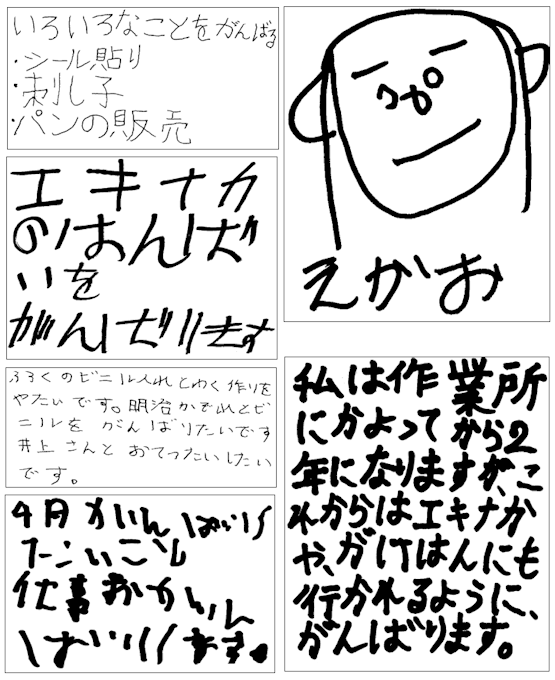 いろいろなことをがんばる
・シール貼り
・刺し子
・パンの販売
エキナカ
のはんば
いを
がんばります
えがお
ふろくのビニール入れとわく作りを
やたいです。明治かぞれとビ
ニールを がんばりたいです
井上 さんと おてつたいしたい
です。
4月
仕事おがんし
ばいります。
私は作業所
にかよってから2
年になりますが、こ
れからはエキナカ
や、がいはんにも
行かれるように、
がんばります。